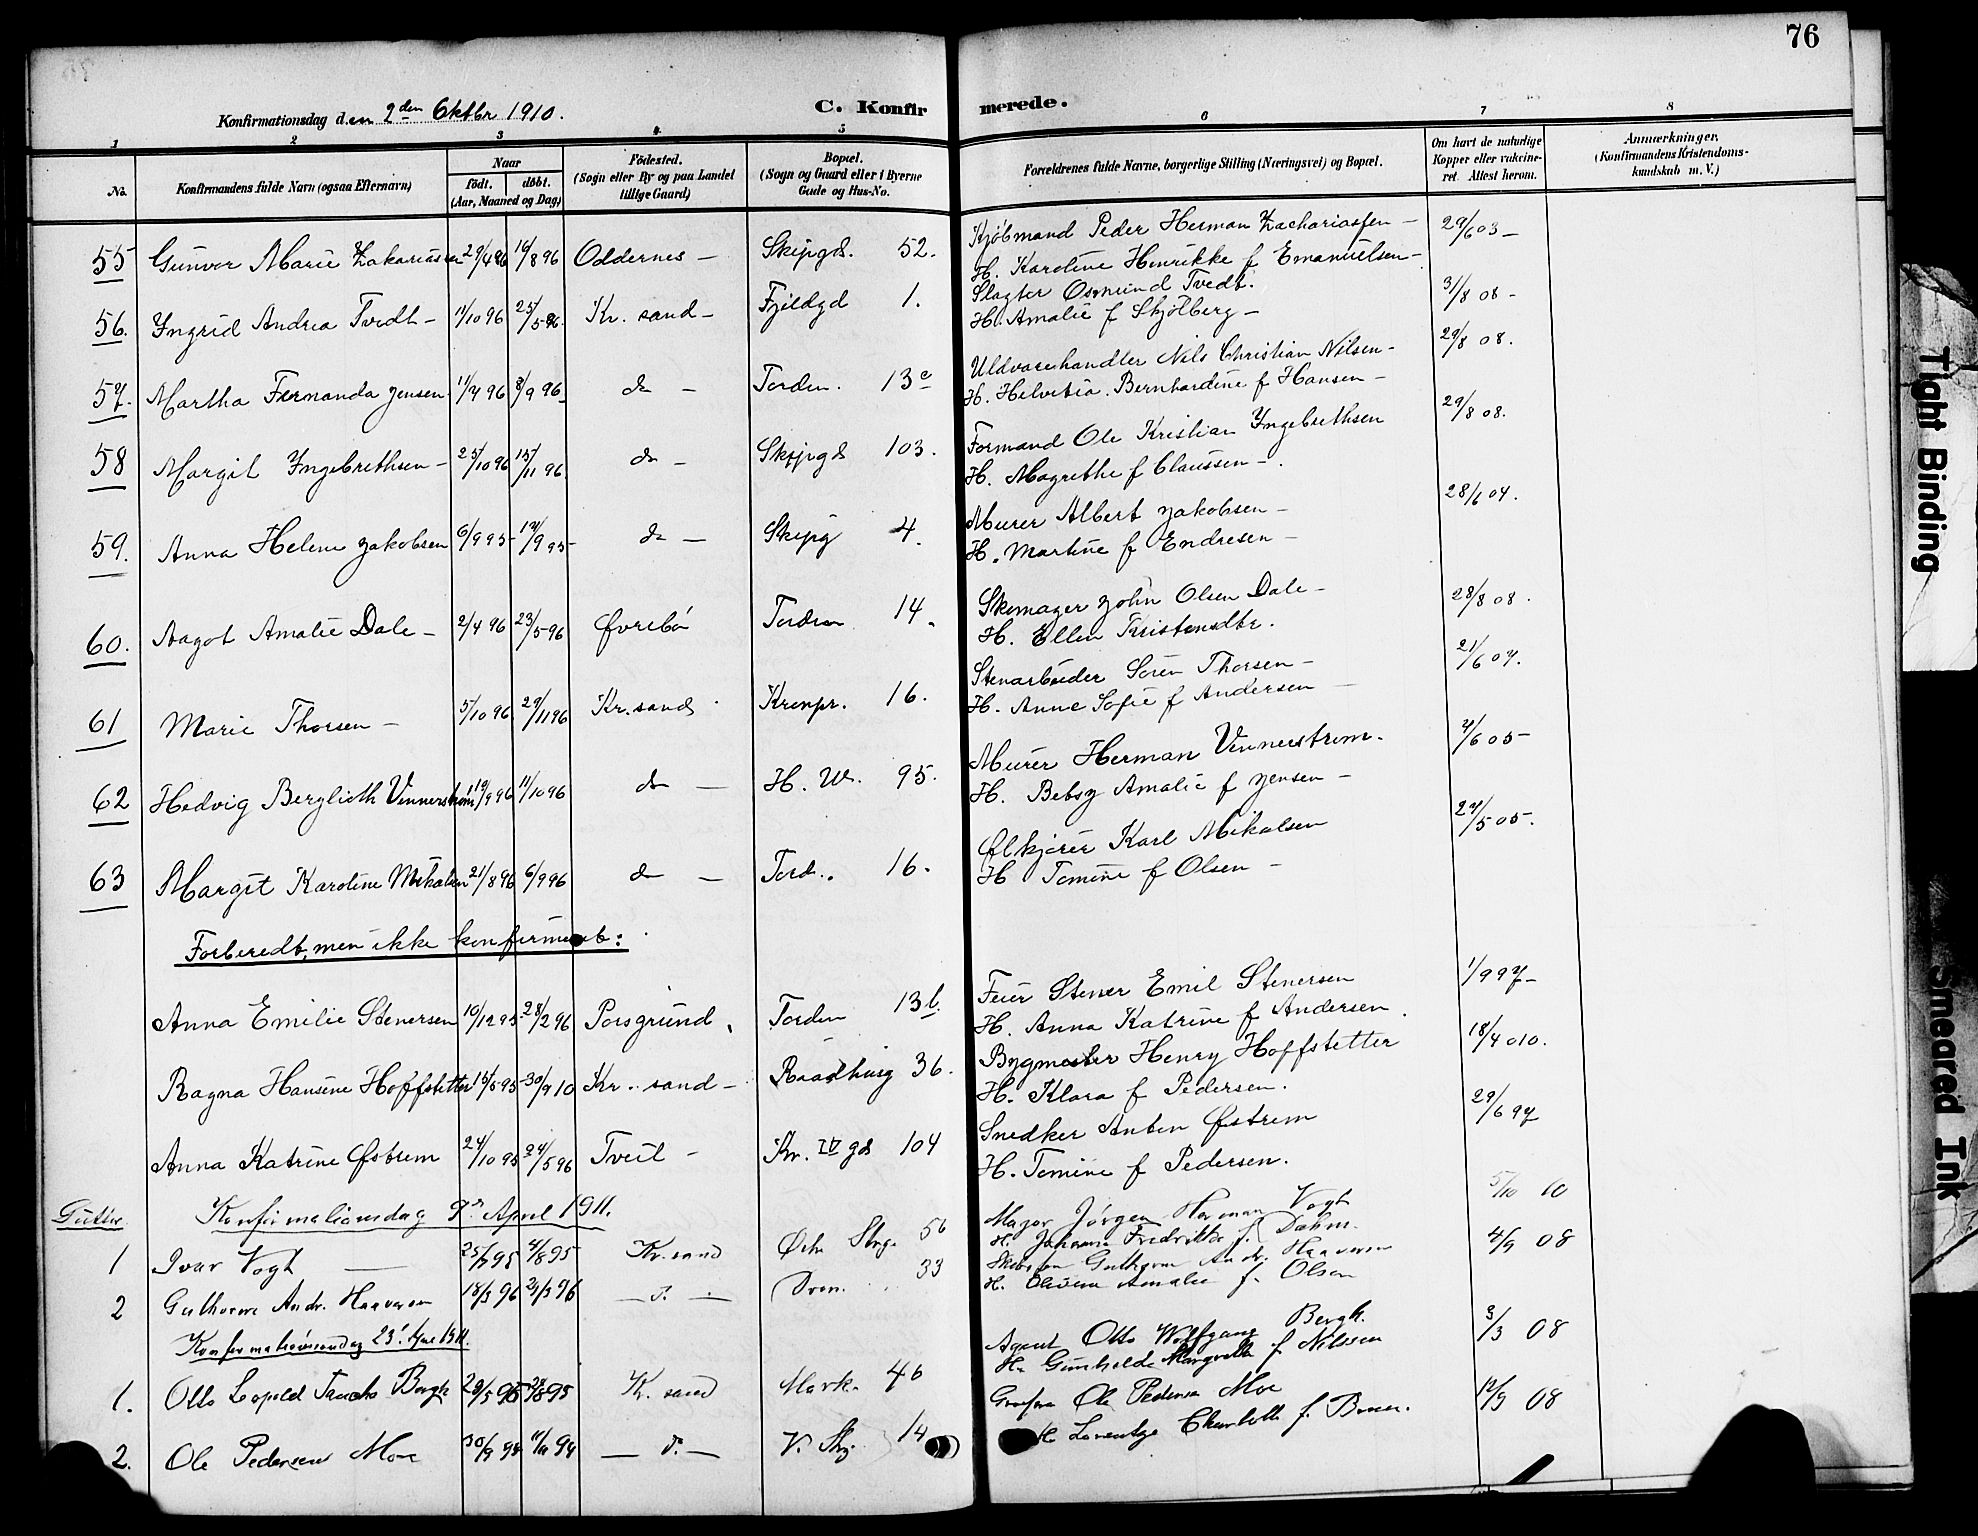 76
Konfirmationsdag den 2den Oktbr 1910. C. Konfirmerede.
1 2 3 4 5 6 7 8
No. Konfirmandens fulde Navn (ogsaa Efternavn) Naar født. døbt. (Aar, Maaned og Dag) Fødested. (Sogn eller By og paa Landet tillige Gaard) Bopæl. (Sogn og Gaard eller i Byerne Gade og Hus-No. Forældrenes fulde Navne, borgerlige Stilling (Næringsvei) og Bopæl. Om havt de naturlige Kopper eller vaccineret. Attest herom. Anmærkninger. (Konfirmandens Kristendomskundskab m. V.)
55 Gunvor Marie Zakariassen 29/4 96 16/8 96 Oddernes – Skipgd. 52. Kjøbmand Peder Herman Zachariassen – 29/6 03 –
H. Karoline Henrikke f Emanuelsen –
56. Yngrid Andrea Tvedt – 11/10 96 25/5 96. Kr. sand – Fjeldgd 1. Slagter Osmund Tvedt. 31/8 08 –
H. Amalie f Skjølberg –
57. Martha Fernanda Jensen 8/9 96 do – Torden. 13c Uldvarehandler Nils Christian Nilsen – 29/8 08.
H. Helvetia. Bernhardine f Hansen –
58 Margit Yngebrethsen – 25/10 96 15/11 96. do – Skipgd 103. Formand Ole Kristian Yngebrethsen 29/8 08.
H. Magrethe f Claussen –.
59. Anna Helene Jakobsen 6/9 95 do – Skipg 4. Murer Albert Jakobsen – 28/6 04.
H. Martine f Endresen –
60. Aagot Amalie Dale – 2/4 96 23/5 96 Øvrebø Torden 14. Skomager John Olsen Dale – 28/8 08.
H. Ellen Kristensdtr.
61 Marie Thorsen – 5/10 96 29/11 96 Kr. sand. Kronpr. 16. Stenarbeider Søren Thorsen – 21/6 07.
H. Anne Sofie f Andersen –
62 Hedvig Berglioth Vennerstrøm 19/9 96 11/10 96 do – H. W. 95. Murer Herman Vennerstrøm. 4/6 05 –
H. Betsy Amalie f Jensen –
63 Margit Karoline Mikalsen 21/8 96 6/9 96 do – Tord.. 16. Ølkjører Karl Mikalsen 24/5 05.
H Tomine f Olsen –
Forberedt, men ikke konfirmert:
Anna Emilie Stenersen 10/12 95 28/2 96 Porsgrund. Torden 13b. Feier Stener Emil Stenersen 1/9 97 –
H. Anna Katrine f Andersen.
Ragna Hansine Hoffstetter 15/5 95 30/9 10 Kr. sand – Raadhusg 36. Bygmester Henry Hoffstetter 18/4 010.
H. Klara f Pedersen.
Anna Katrine Østrem 24/10 95 24/5 96 Tveit – Kr. IV gd 104 Snedker Anton Østrem 29/6 97
H. Tomine f Pedersen.
Gutter. Konfirmationsdag 9de April 1911.
1 Ivar Vogt 4/8 95 Kr. sand Østr Strg. 56 Major Jörgen Herman Vogt 5/10 10
H. Johanne Fredrikke f. Dahm.
2 Guthorm Andr. Haaversen 18/3 96 – d. – Dron. 33 Guthorm Andr. Haaversen 4/9 08
H. Olivia Amalie f. Olsen
Konfirmationsdag 23' 1911.
1. Otto Leopold Bergh 29/5 95 Kr. sand Mark. 46 Agent Otto Wolfgang Bergh. 3/3 08
H. Gunhilde Margrethe f Nilssen
2. Ole Pedersen Moe 30/9 94 – d. – V. Strg. 14 Ole Pedersen Moe 12/9 08
H. Lorentze Charlotte f.
Tight Binding
Smeared Ink